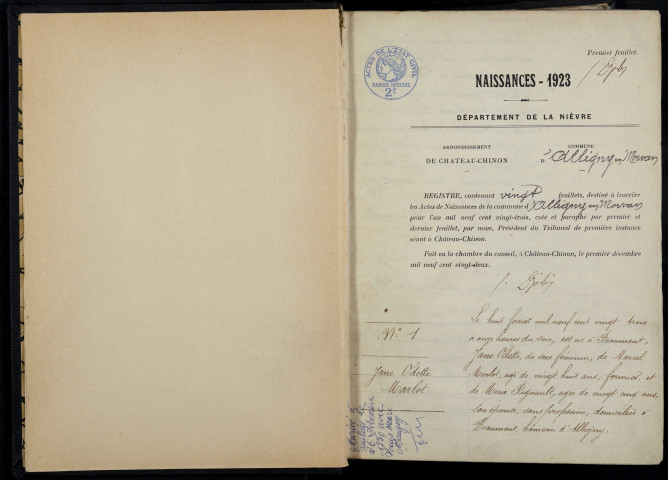 Premier feuillet.
ACTES DE L'ÉTAT CIVIL
PAPIER SPÉCIAL
2F
NAISSANCES - 1923
DÉPARTEMENT DE LA NIÈVRE
ARRONDISSEMENT
DE CHATEAU-CHINON
COMMUNE
d'Alligny en Morvan
REGISTRE, contenant vingt feuillets, destiné à inscrire
les Actes de Naissances de la commune d'Alligny en Morvan
pour l'an mil neuf cent vingt-trois, coté et paraphé par premier et
dernier feuillet, par nous, Président du Tribunal de première instance
séant à Château-Chinon.
Fait en la chambre du conseil, à Château-Chinon, le premier décembre
mil neuf cent vingt-deux.
N° 1
Jane Odette
Marlot
Le huit février mil neuf cent vingt trois
à onze heures du soir, est née à Beaumont,
Jane Odette, du sexe féminin, de Marcel
Marlot, âgé de vingt huit ans, fermier, et
de Marie Regnault, âgée de vingt cinq ans,
son épouse, sans profession, domiciliés à
Beaumont, hameau d'Alligny.
Mariée à